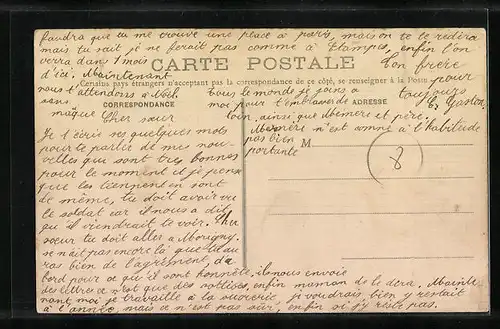 faudra que tu me trouve une place à paris, maison te le redira
mais tu sait je ne ferait pas comme a Etampes, enfin l'on
verra dans 1 mois
d'ici. Maintenant
nous t'attendons a Noël
sans
CARTE POSTALE
Certains pays étrangers n'acceptant pas la correspondance de ce côté, se renseigner à la Poste
Ton frère
pour
toujours
Gaston.
tous le monde je joins a
moi pour t'embrasser de
loin, ainsi que Mémère et père.
Mémère n'est comme a l'habitude
pas bien
portante
CORRESPONDANCE
ADRESSE
M
8
Cher sœur
Je t'écris ses quelques mots
pour te parler de mes nou-
velles qui sont très bonnes
pour le moment et je pense
que les tiennent en sont
de même, tu doit avoir vu
le soldat car il nous a dit
qu'il viendrait te voir. Cher
sœur tu doit aller a Morigny.
se n'ait pas encore là que tu au
ras bien de l'agrément, da
bord pour ce qu'il sont honnête, il nous envoie
des lettres ce n'est que des sottises, enfin maman de le dera. Mainte-
nant moi je travaille à la sucrerie, je voudrais bien y restait
à l'année, mais ce n'est pas sûr, enfin si j'y reste pas.